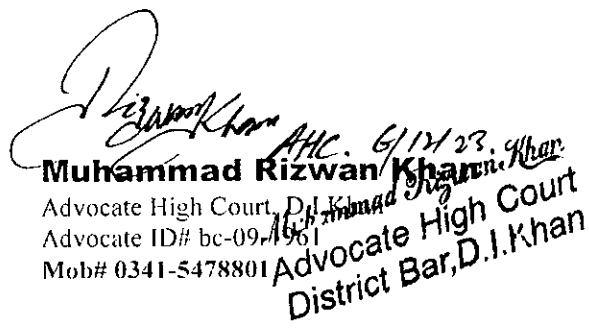 Rizwan Khan
AHC. 6/12/23.
Muhammad Rizwan Khan
Advocate High Court, D.I.Khan
Advocate ID# bc-09-1961
Mob# 0341-5478801
Muhammad Rizwan Khan
Advocate High Court
District Bar,D.I.Khan